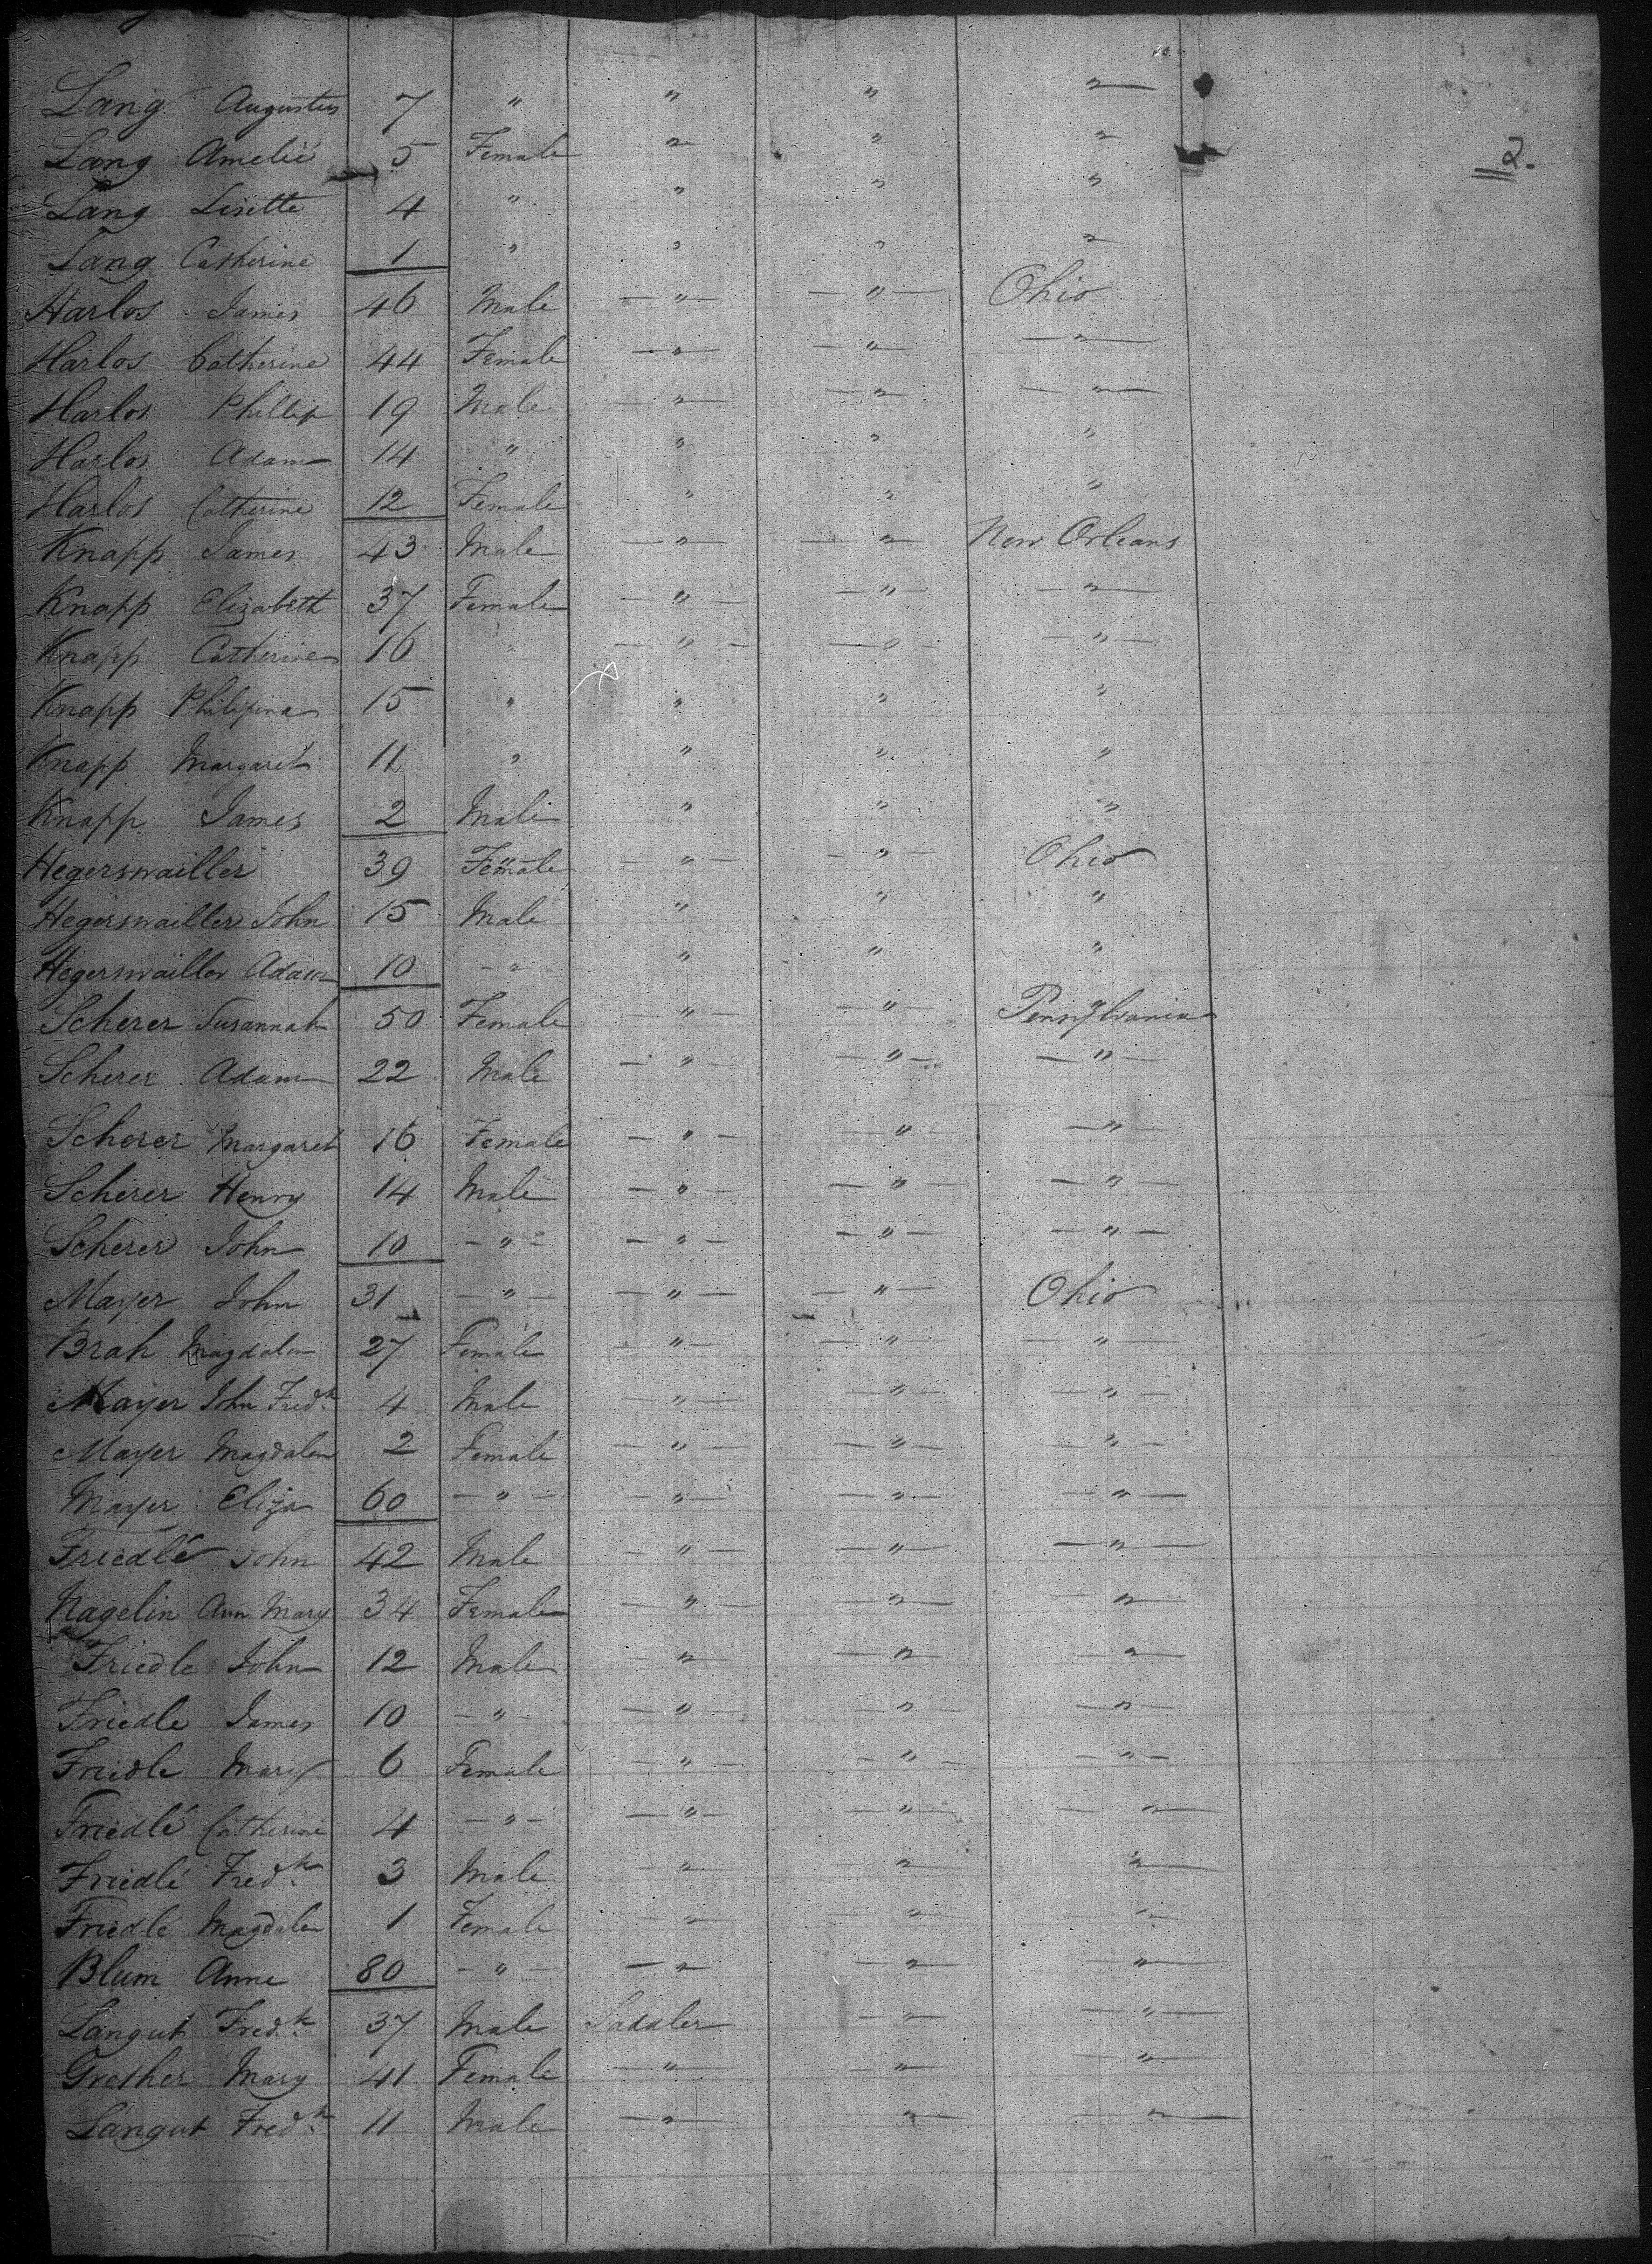 2.
Lang Augustus 7 " " " "
Lang Amelié 5 Female " " "
Lang Lisette 4 " " " "
Lang Catherine 1 " " " "
Harlos James 46 Male — " — — " — Ohio
Harlos Catherine 44 Female — " — — " — — " —
Harlos Phillip 19 Male — " — — " — — " —
Harlos Adam 14 " " " "
Harlos Catherine 12 Female " " "
Knapp James 43 Male — " — — " — New Orleans
Knapp Elizabeth 37 Female — " — — " — — " —
Knapp Catherine 16 " — " — — " — — " —
Knapp Philipina 15 " " " "
Knapp Margaret 11 " " " "
Knapp James 2 Male " " "
Hegerswailler 39 Female — " — — " — Ohio
Hegerswailler John 15 Male " " "
Hegerswailler Adam 10 — " — " " "
Scherer Susannah 50 Female — " — — " — Pensylvania
Scherer Adam 22 Male — " — — " — — " —
Scherer Margaret 16 Female — " — — " — — " —
Scherer Henry 14 Male — " — — " — — " —
Scherer John 10 — " — — " — — " — — " —
Mayer John 31 — " — — " — — " — Ohio
Brah Magdalen 27 Female — " — — " — — " —
Mayer John Fredk. 4 Male — " — — " — — " —
Mayer Magdalen 2 Female — " — — " — — " —
Mayer Eliza 60 — " — — " — — " — — " —
Friedlé John 42 Male — " — — " — — " —
Nagelin Ann Mary 34 Female — " — — " — — " —
Friedle John 12 Male — " — — " — — " —
Friedle James 10 — " — — " — — " — — " —
Friedle Mary 6 Female — " — — " — — " —
Friedlé Catherine 4 — " — — " — — " — — " —
Friedlé Fredk. 3 Male — " — — " — — " —
Friedlé Magdalen 1 Female — " — — " — — " —
Blum Anne 80 — " — — " — — " — — " —
Langut Fredk. 37 Male Saddler — " — — " —
Grether Mary 41 Female — " — — " — — " —
Langut Fredk. 11 Male — " — — " — — " —